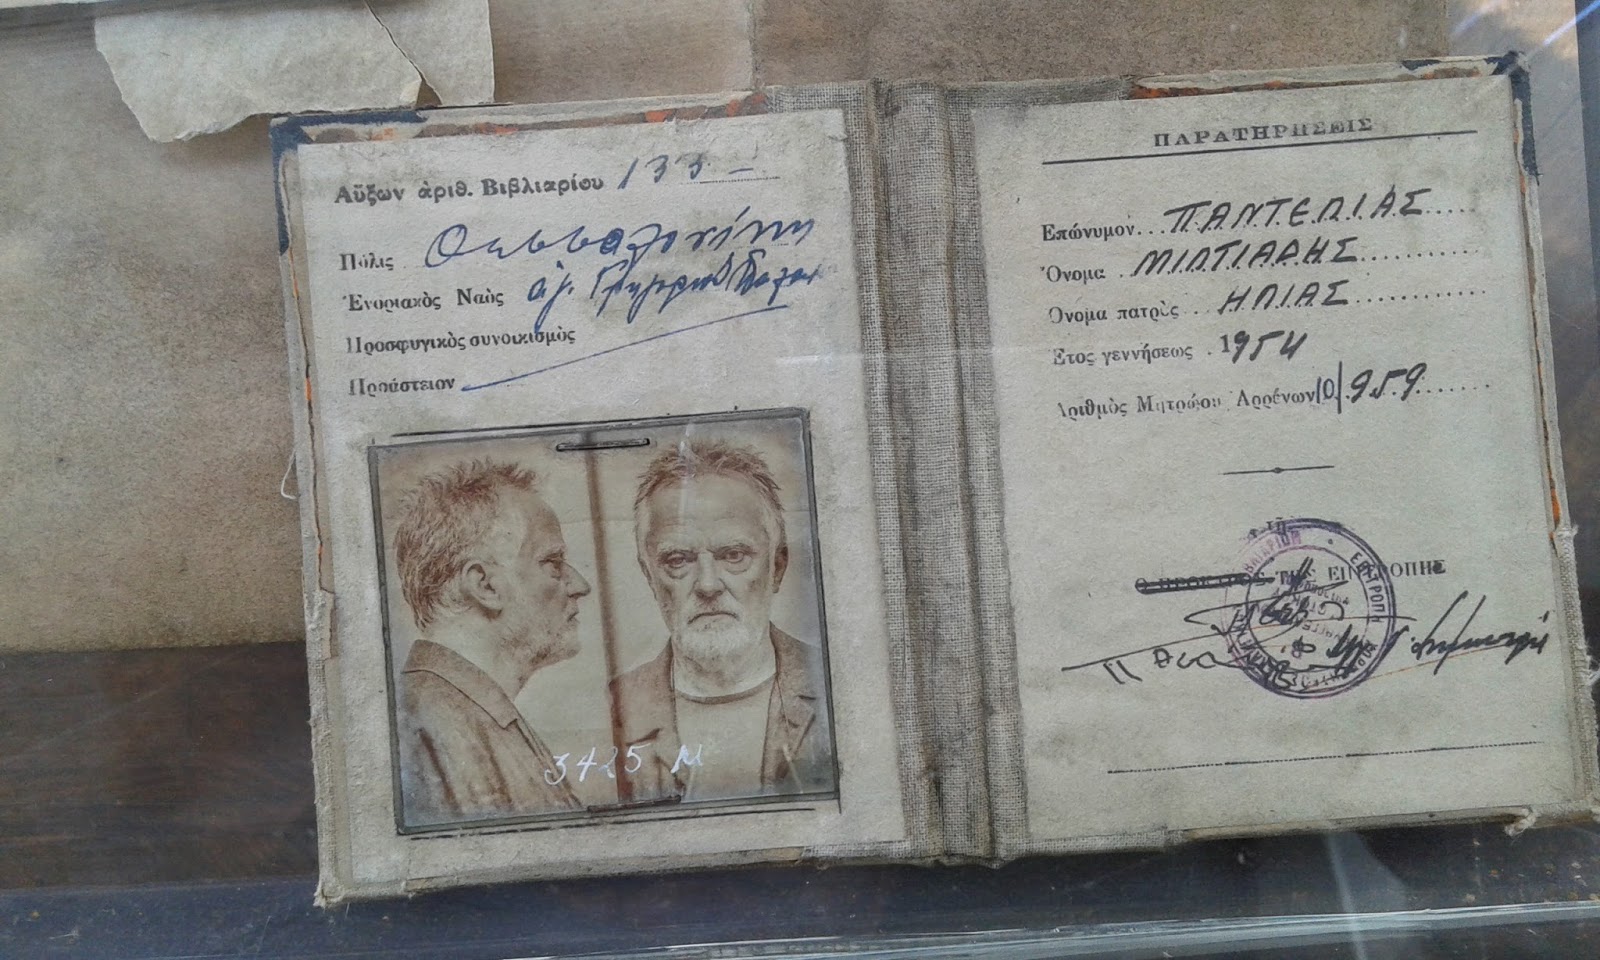 Αὔξων ἀριθ. Βιβλιαρίου 133
Πόλις Θεσσαλονίκη
Ἐνοριακὸς Ναὸς ἁγ. Γρηγορίου Παλαμ
Προσφυγικὸς συνοικισμὸς
Προάστειον
3425 М
ΠΑΡΑΤΗΡΗΣΕΙΣ
Ἐπώνυμον ΠΑΝΤΕΛΙΑΣ
Ὄνομα ΜΙΛΤΙΑΔΗΣ
Ὄνομα πατρὸς ΗΛΙΑΣ
Ἔτος γεννήσεως 1954
Ἀριθμὸς Μητρώου Ἀρρένων 10/959
ΤΗΣ ΕΠΙΤΡΟΠΗΣ
ΕΠΙΤΡΟΠΗ